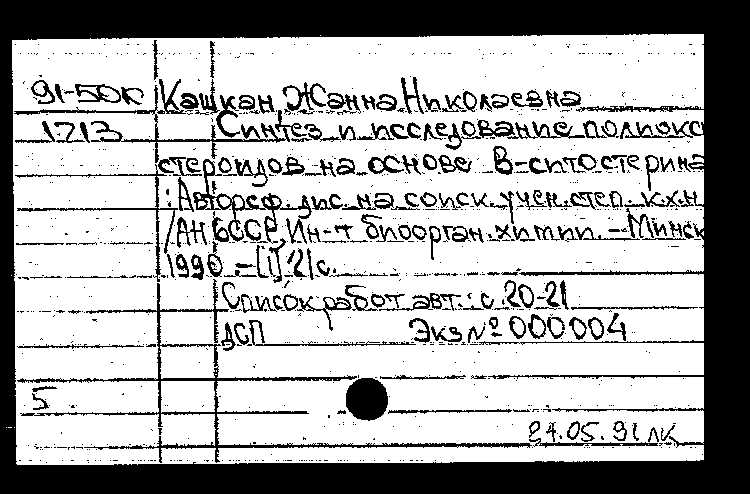 91-50к Кашкан, Жанна Николаевна
1713 Синтез и исследование полиокс
стероидов на основе В-ситостерина
: Автореф. дис. на соиск. учен. степ. к.х.н
/АН БССР, Ин-т биоорган. химии. - Минск
1990. - [1], 21 с.
Список работ авт.: с. 20-21
ДСП Экз № 000004
5
24.05.91 лк